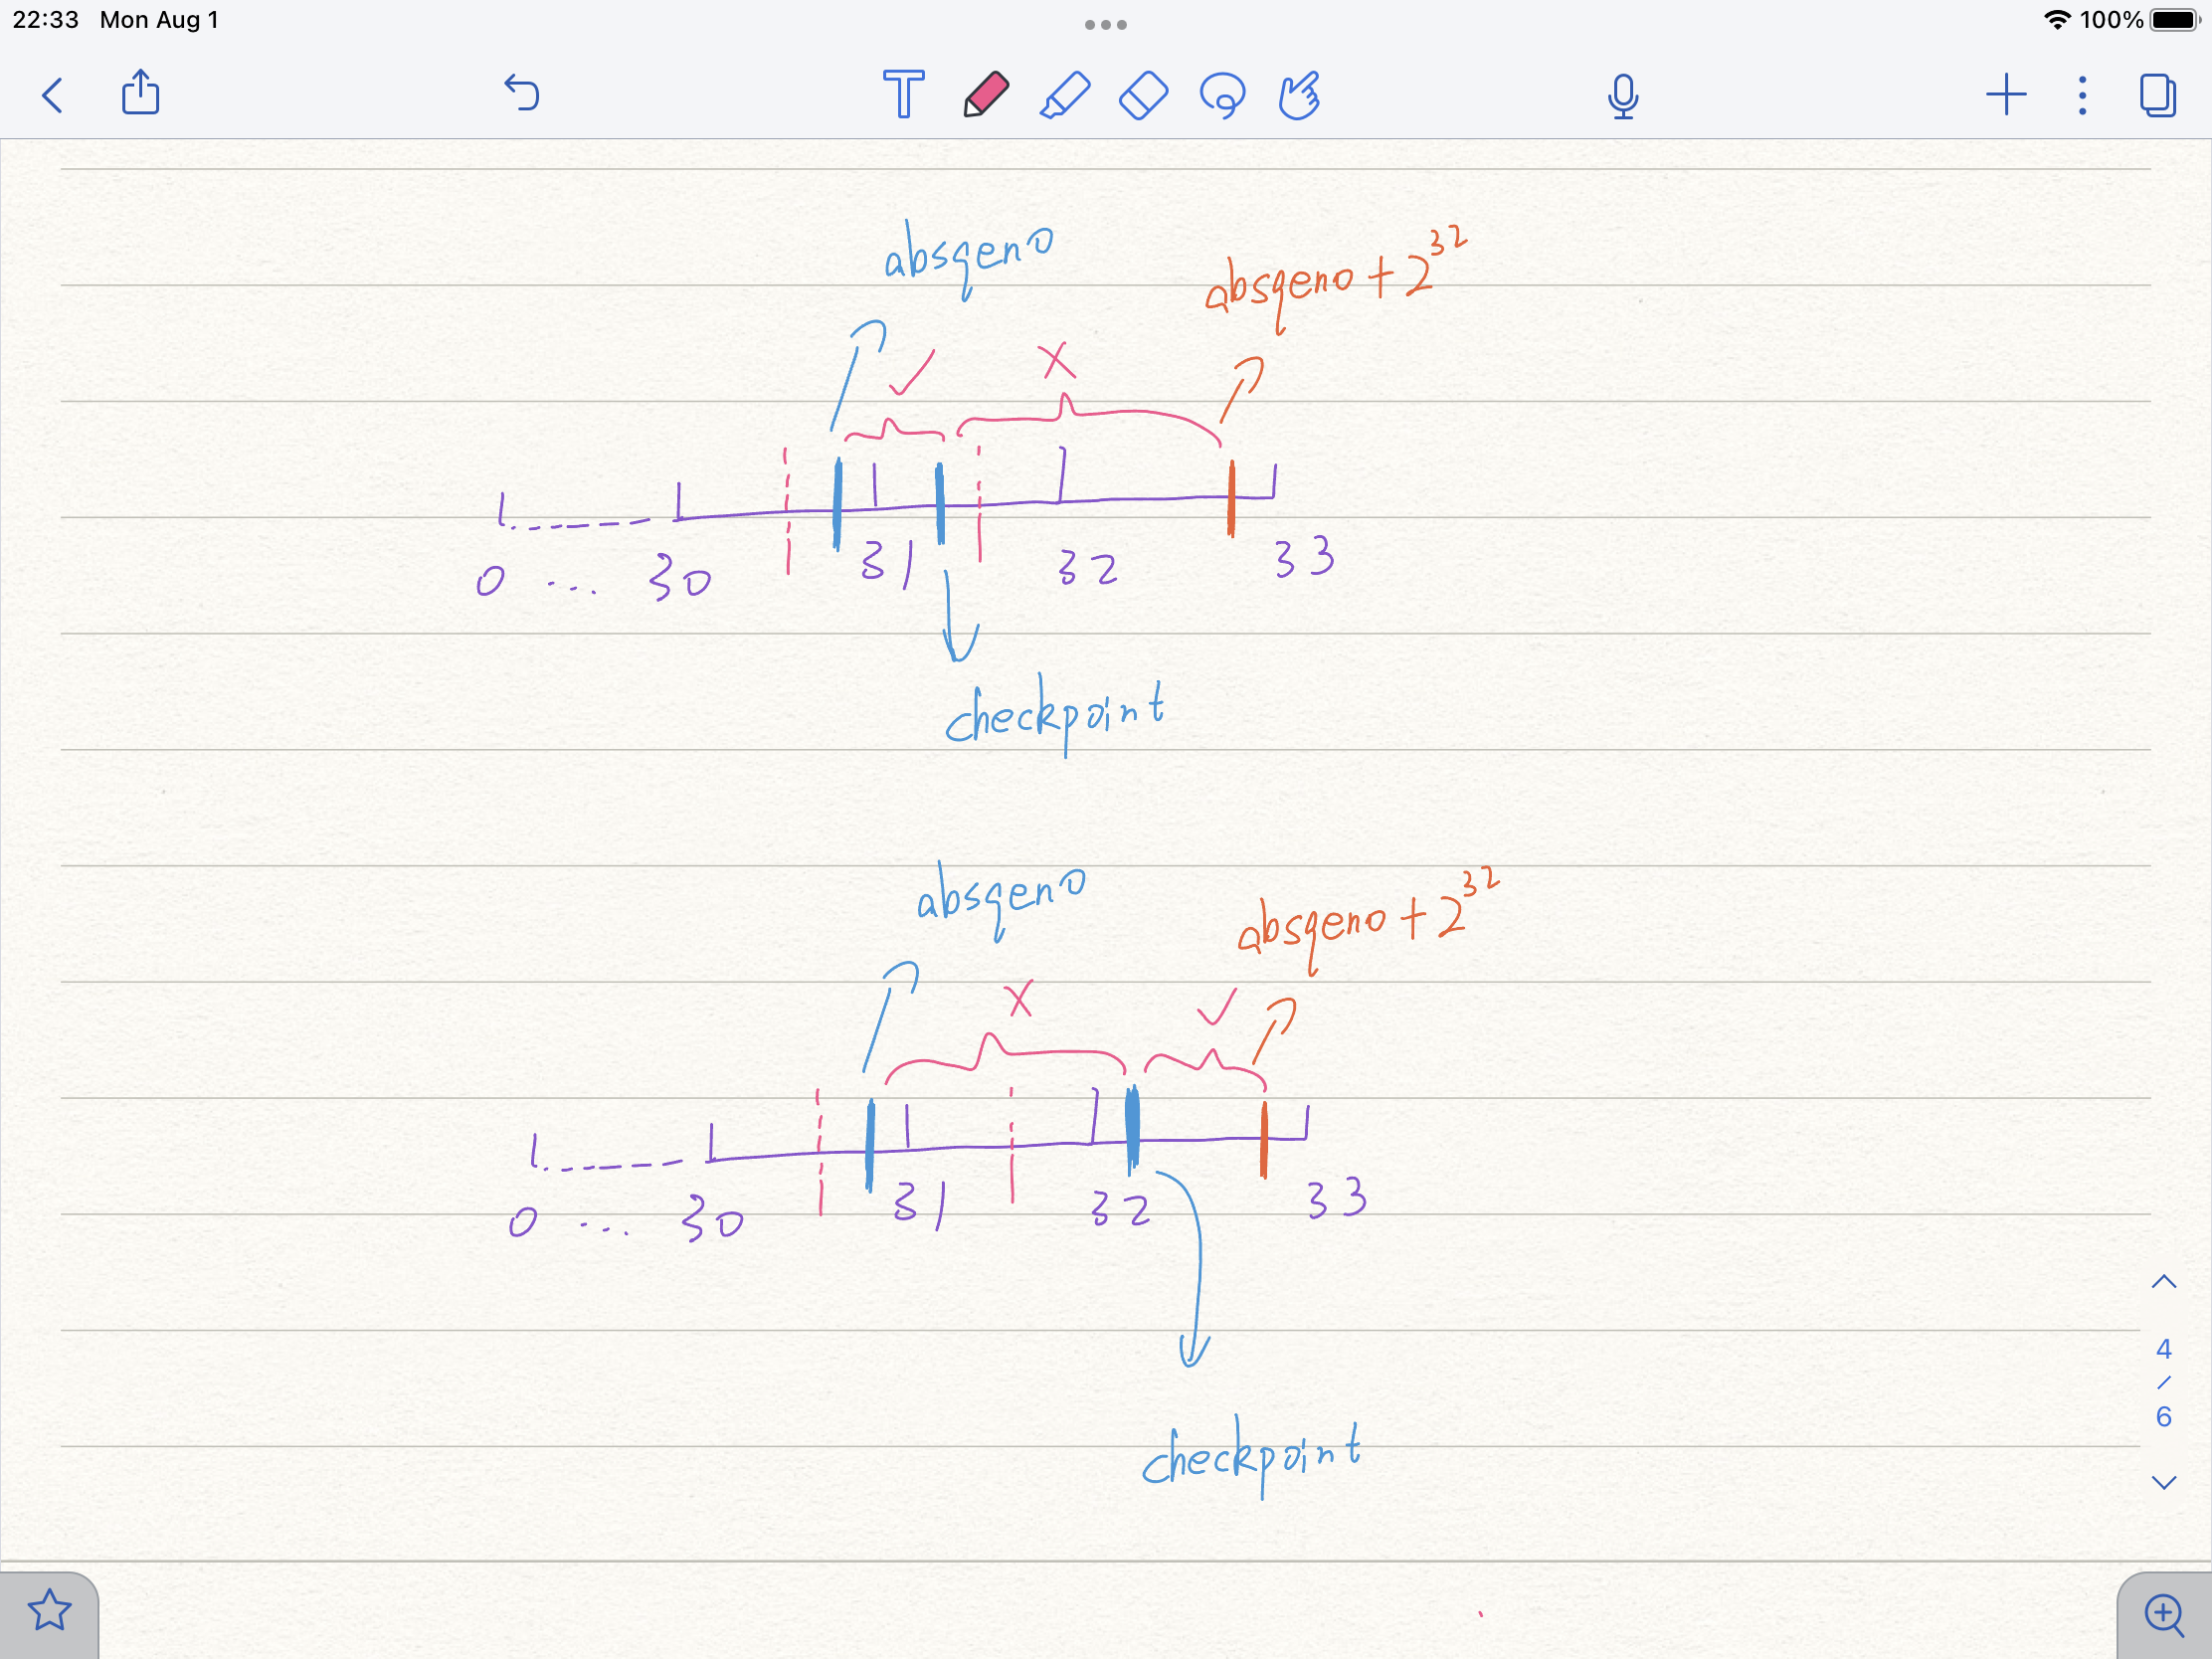 22:33 Mon Aug 1 100%
T
absqeno
absqeno + 2^32
✓ X
0 ... 30 31 32 33
checkpoint
absqeno
absqeno + 2^32
X ✓
0 ... 30 31 32 33
checkpoint
4
/
6